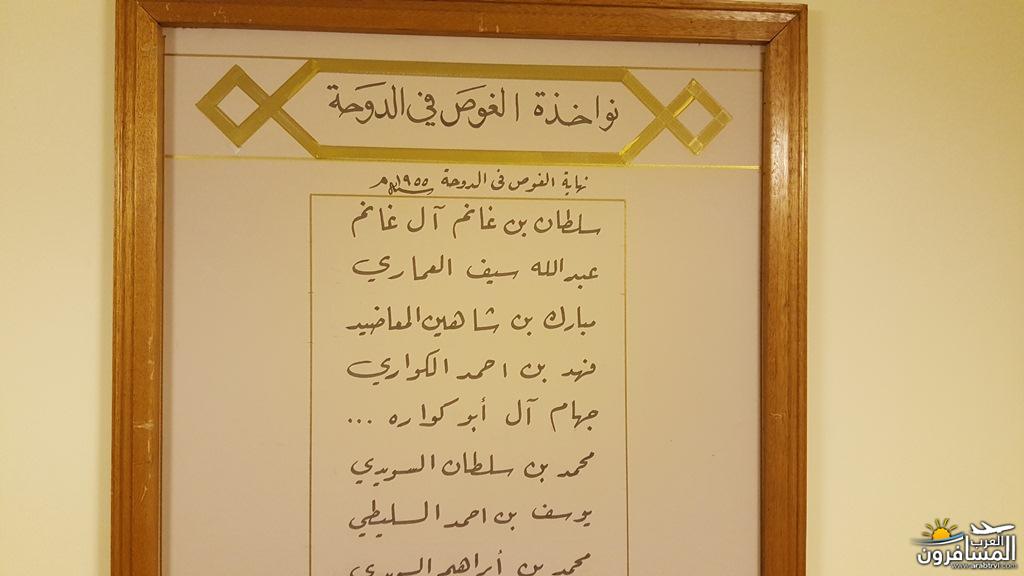 نواخذة الغوص في الدوحة
نهاية الغوص في الدوحة ١٩٥٥م
سلطان بن غانم آل غانم
عبدالله سيف العماري
مبارك بن شاهين المعاضيد
فهد بن احمد الكواري
جهام آل أبو كواره ...
محمد بن سلطان السويدي
يوسف بن احمد السليطي
محمد بن أبراهيم السويدي
العرب
المسافرون
www.arabtrvl.com